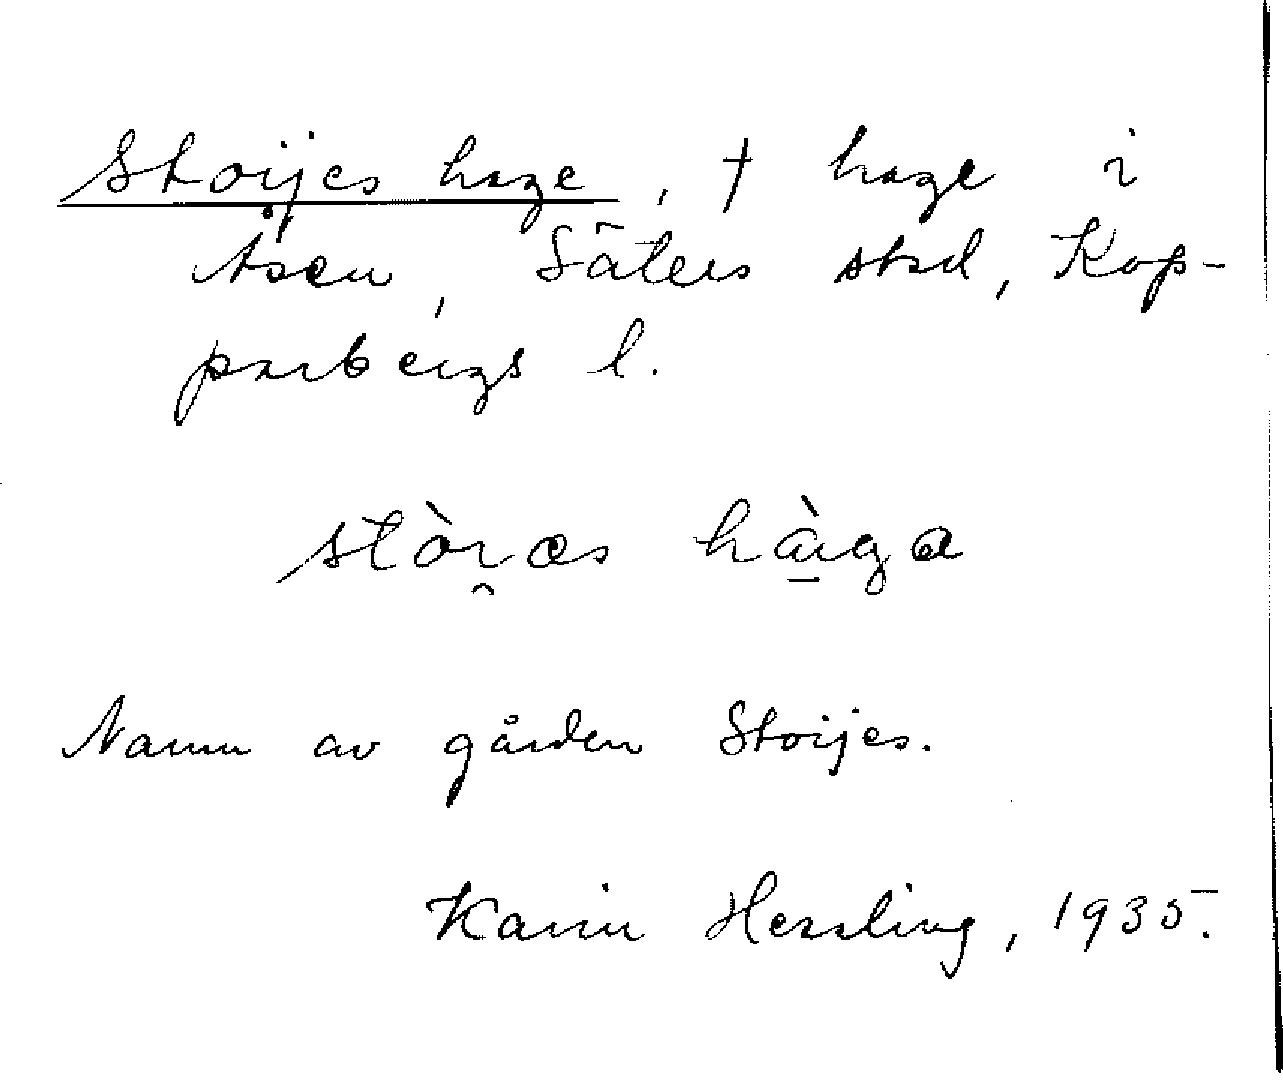 Stoijes hage, † hage i
Åsen, Säters stad, Kop-
parbergs l.
stòɩ̯æs hàga
Namn av gården Stoijes.
Karin Hessling, 1935.